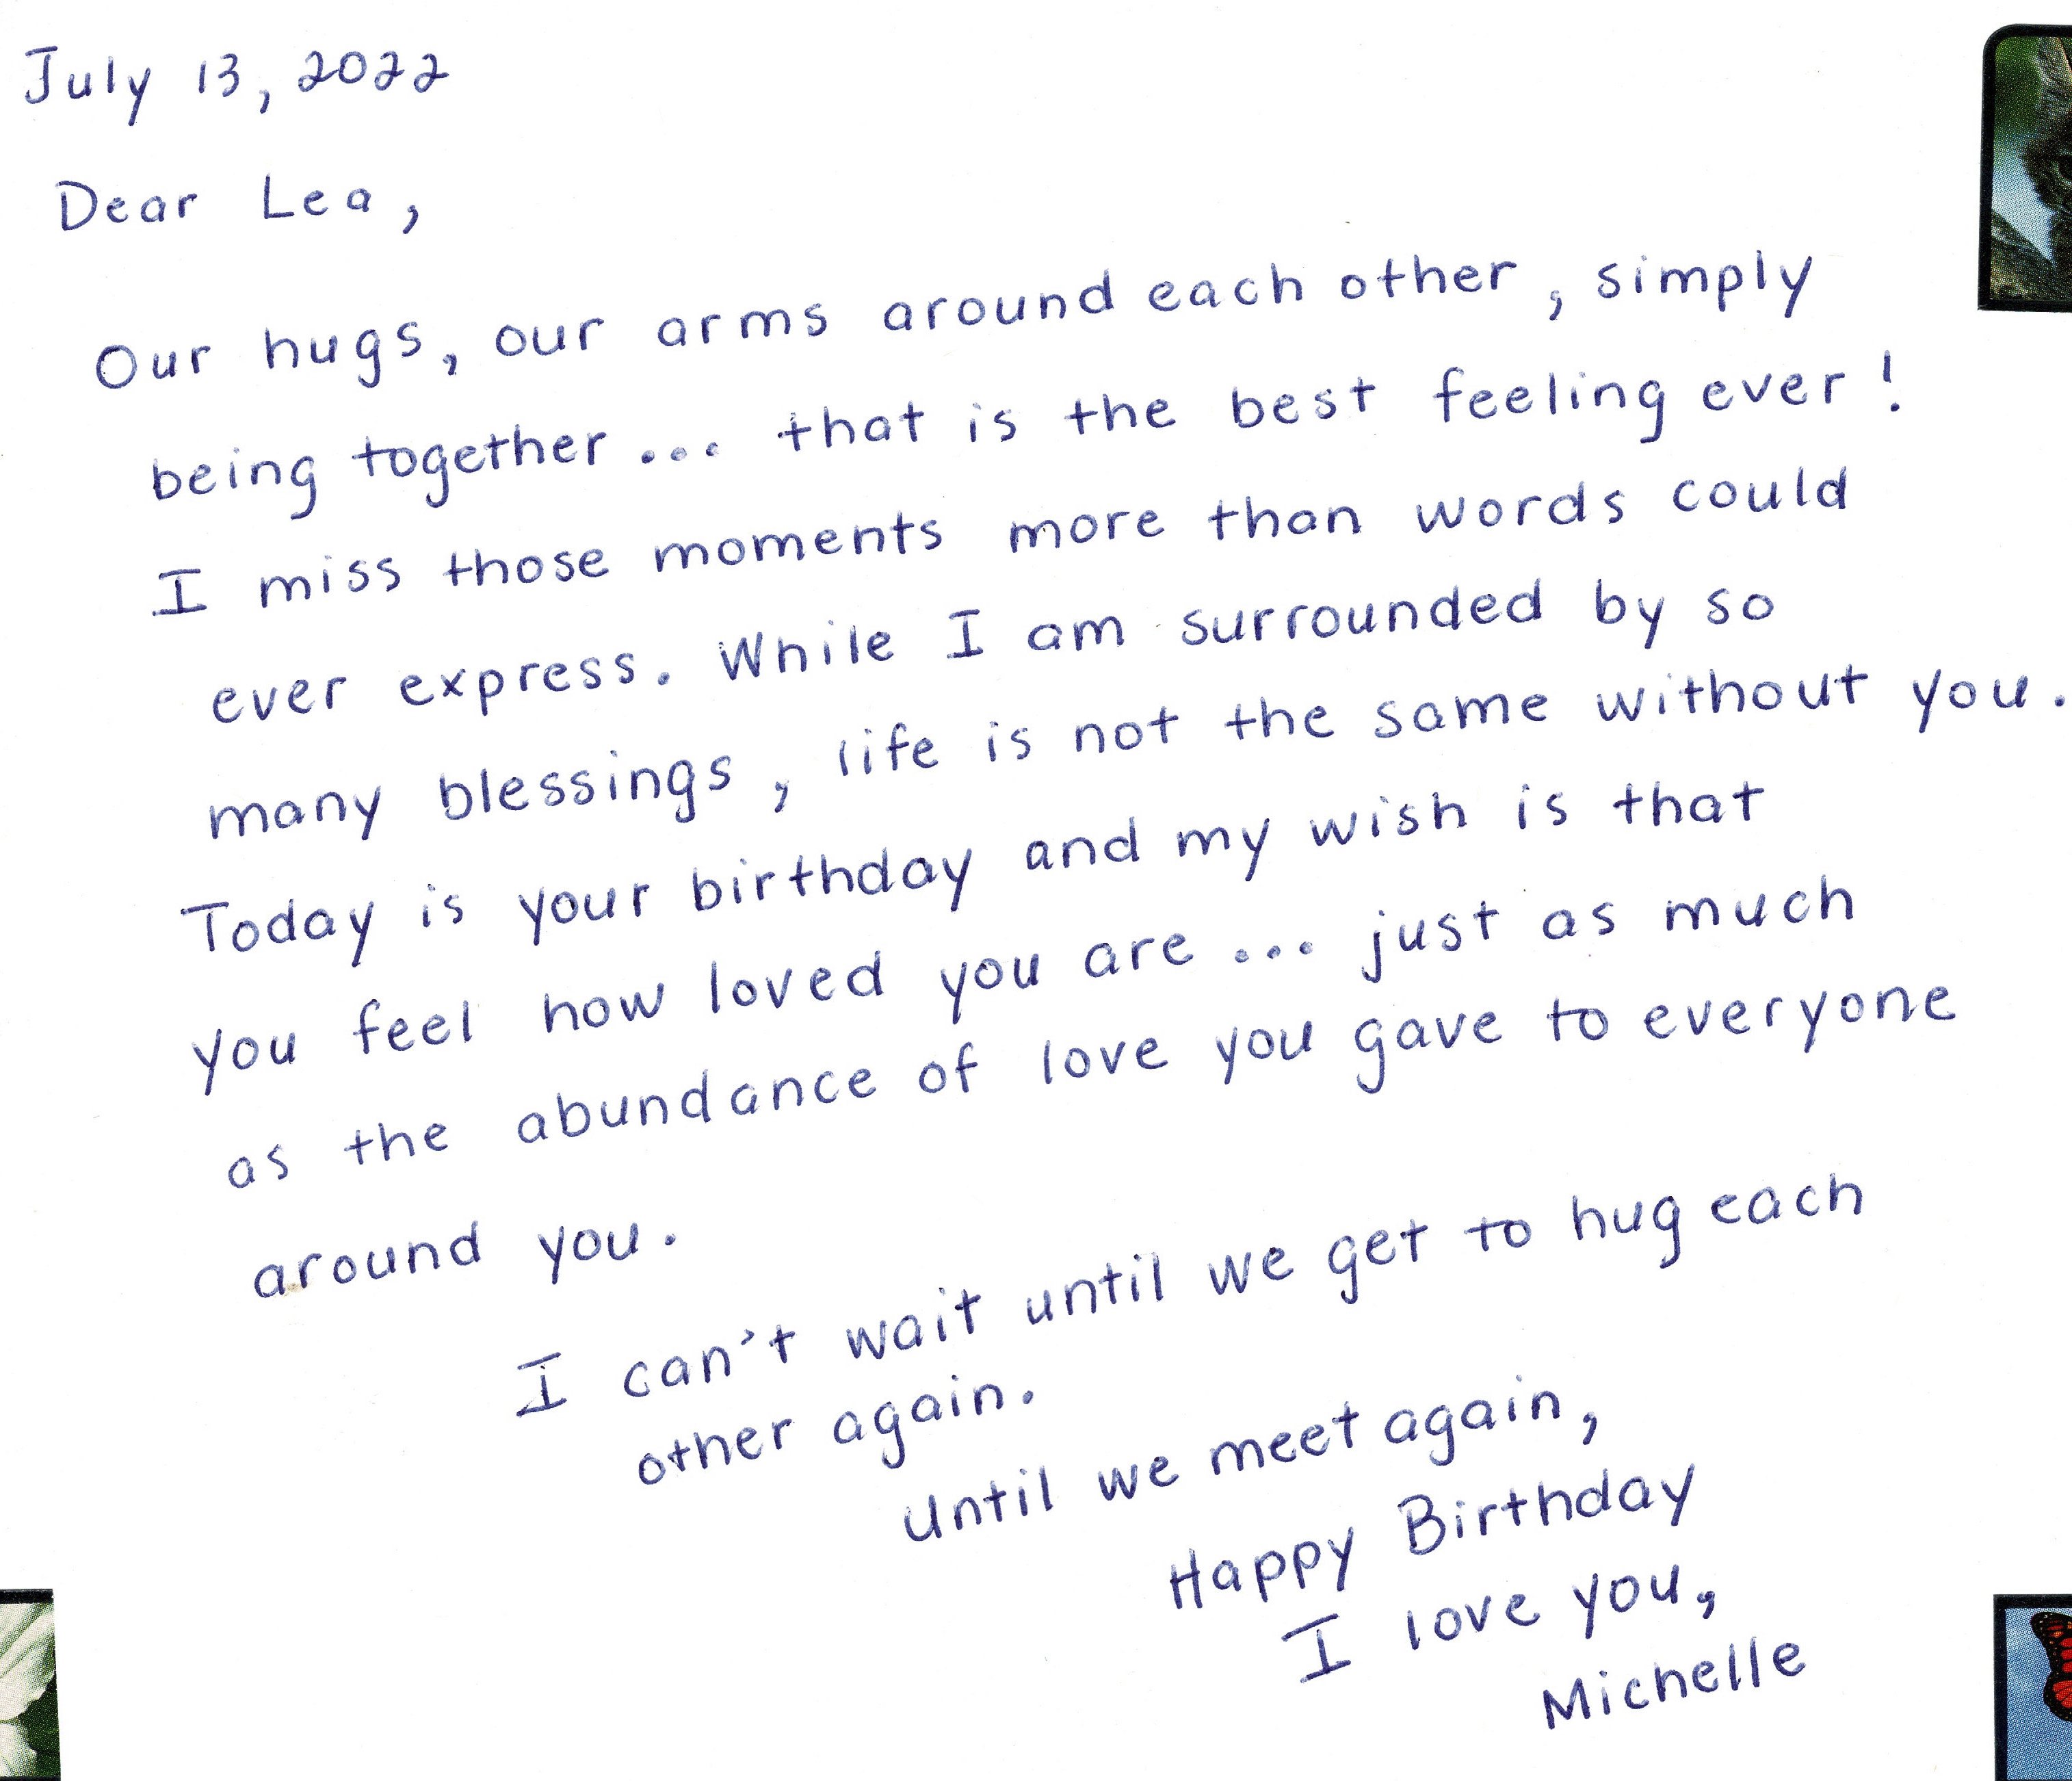 July 13, 2022
Dear Lea,
Our hugs, our arms around each other, simply
being together... that is the best feeling ever!
I miss those moments more than words could
ever express. While I am surrounded by so
many blessings, life is not the same without you.
Today is your birthday and my wish is that
you feel how loved you are... just as much
as the abundance of love you gave to everyone
around you.
I can't wait until we get to hug each
other again.
Until we meet again,
Happy Birthday
I love you,
Michelle